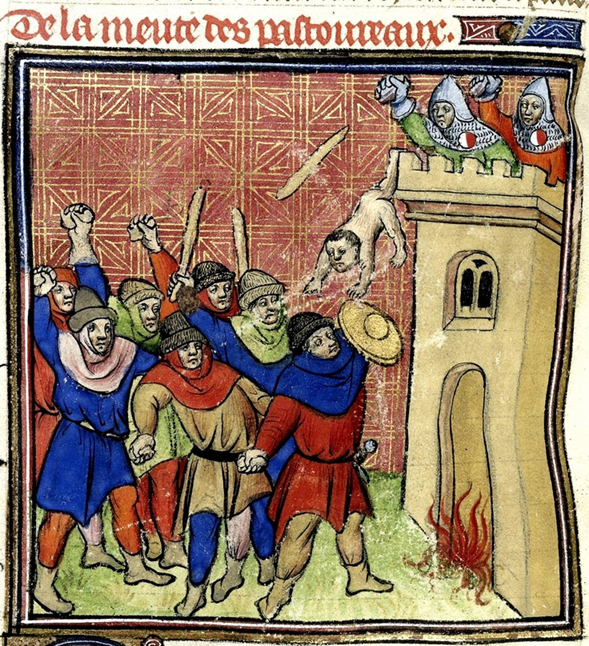 De la meute des pastoureaux.